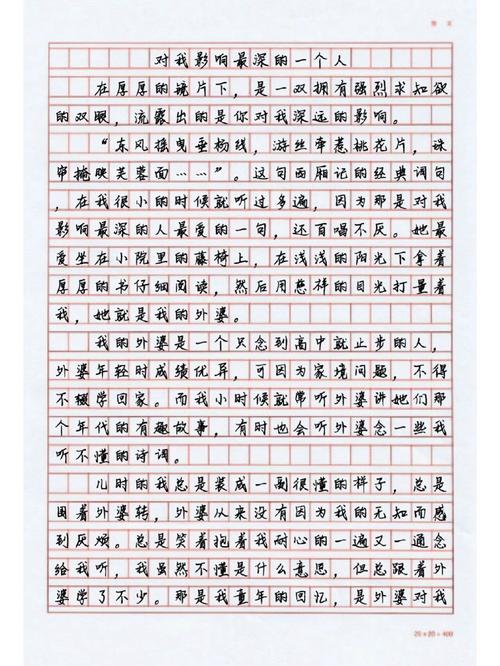 对我影响最深的一个人
在厚厚的镜片下，是一双拥有强烈求知欲
的双眼，流露出的是你对我深远的影响。
“东风摇曳垂杨线，游丝牵惹桃花片，珠
帘掩映芙蓉面……”。这句西厢记的经典词句
，在我很小的时候就听过多遍，因为那是对我
影响最深的人最爱的一句，还百唱不厌。她最
爱坐在小院里的藤椅上，在浅浅的阳光下拿着
厚厚的书仔细阅读，然后用慈祥的目光打量着
我，她就是我的外婆。
我的外婆是一个只念到高中就止步的人，
外婆年轻时成绩优异，可因为家境问题，不得
不辍学回家。而我小时候就常听外婆讲她们那
个年代的有趣故事，有时也会听外婆念一些我
听不懂的诗词。
儿时的我总是装成一副很懂的样子，总是
围着外婆转，外婆从来没有因为我的无知而感
到厌烦。总是笑着抱着我耐心的一遍又一遍念
给我听，我虽然不懂是什么意思，但总跟着外
婆学了不少。那是我童年的回忆，是外婆对我
20×20=400